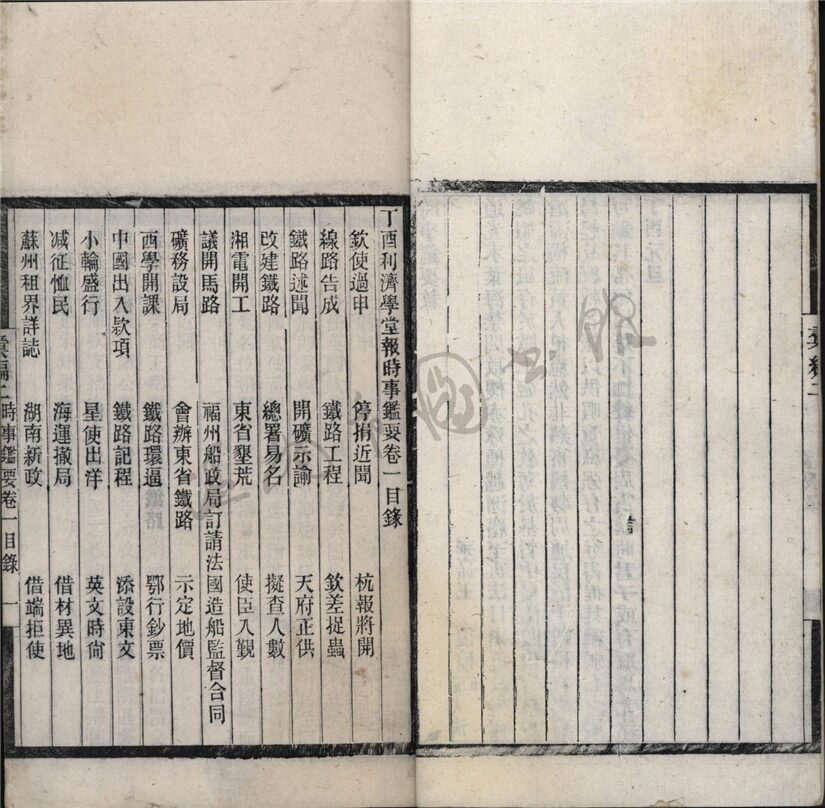 丁酉利濟學堂報時事鑑要卷一目錄
欽使過申 停捐近聞 杭報將開
線路告成 鐵路工程 欽差捉蟲
鐵路述聞 開礦示諭 天府正供
改建鐵路 總署易名 擬查人數
湘電開工 東省墾荒 使臣入覲
議開馬路 福州船政局訂請法國造船監督合同
礦務設局 會辦東省鐵路 示定地價
西學開課 鐵路環逼 鄂行鈔票
中國出入款項 鐵路記程 添設東文
小輪盛行 星使出洋 英文時尚
减征恤民 海運撤局 借材異地
蘇州租界詳誌 湖南新政 借端拒使
彙編二 時事鑑要卷一目錄 一